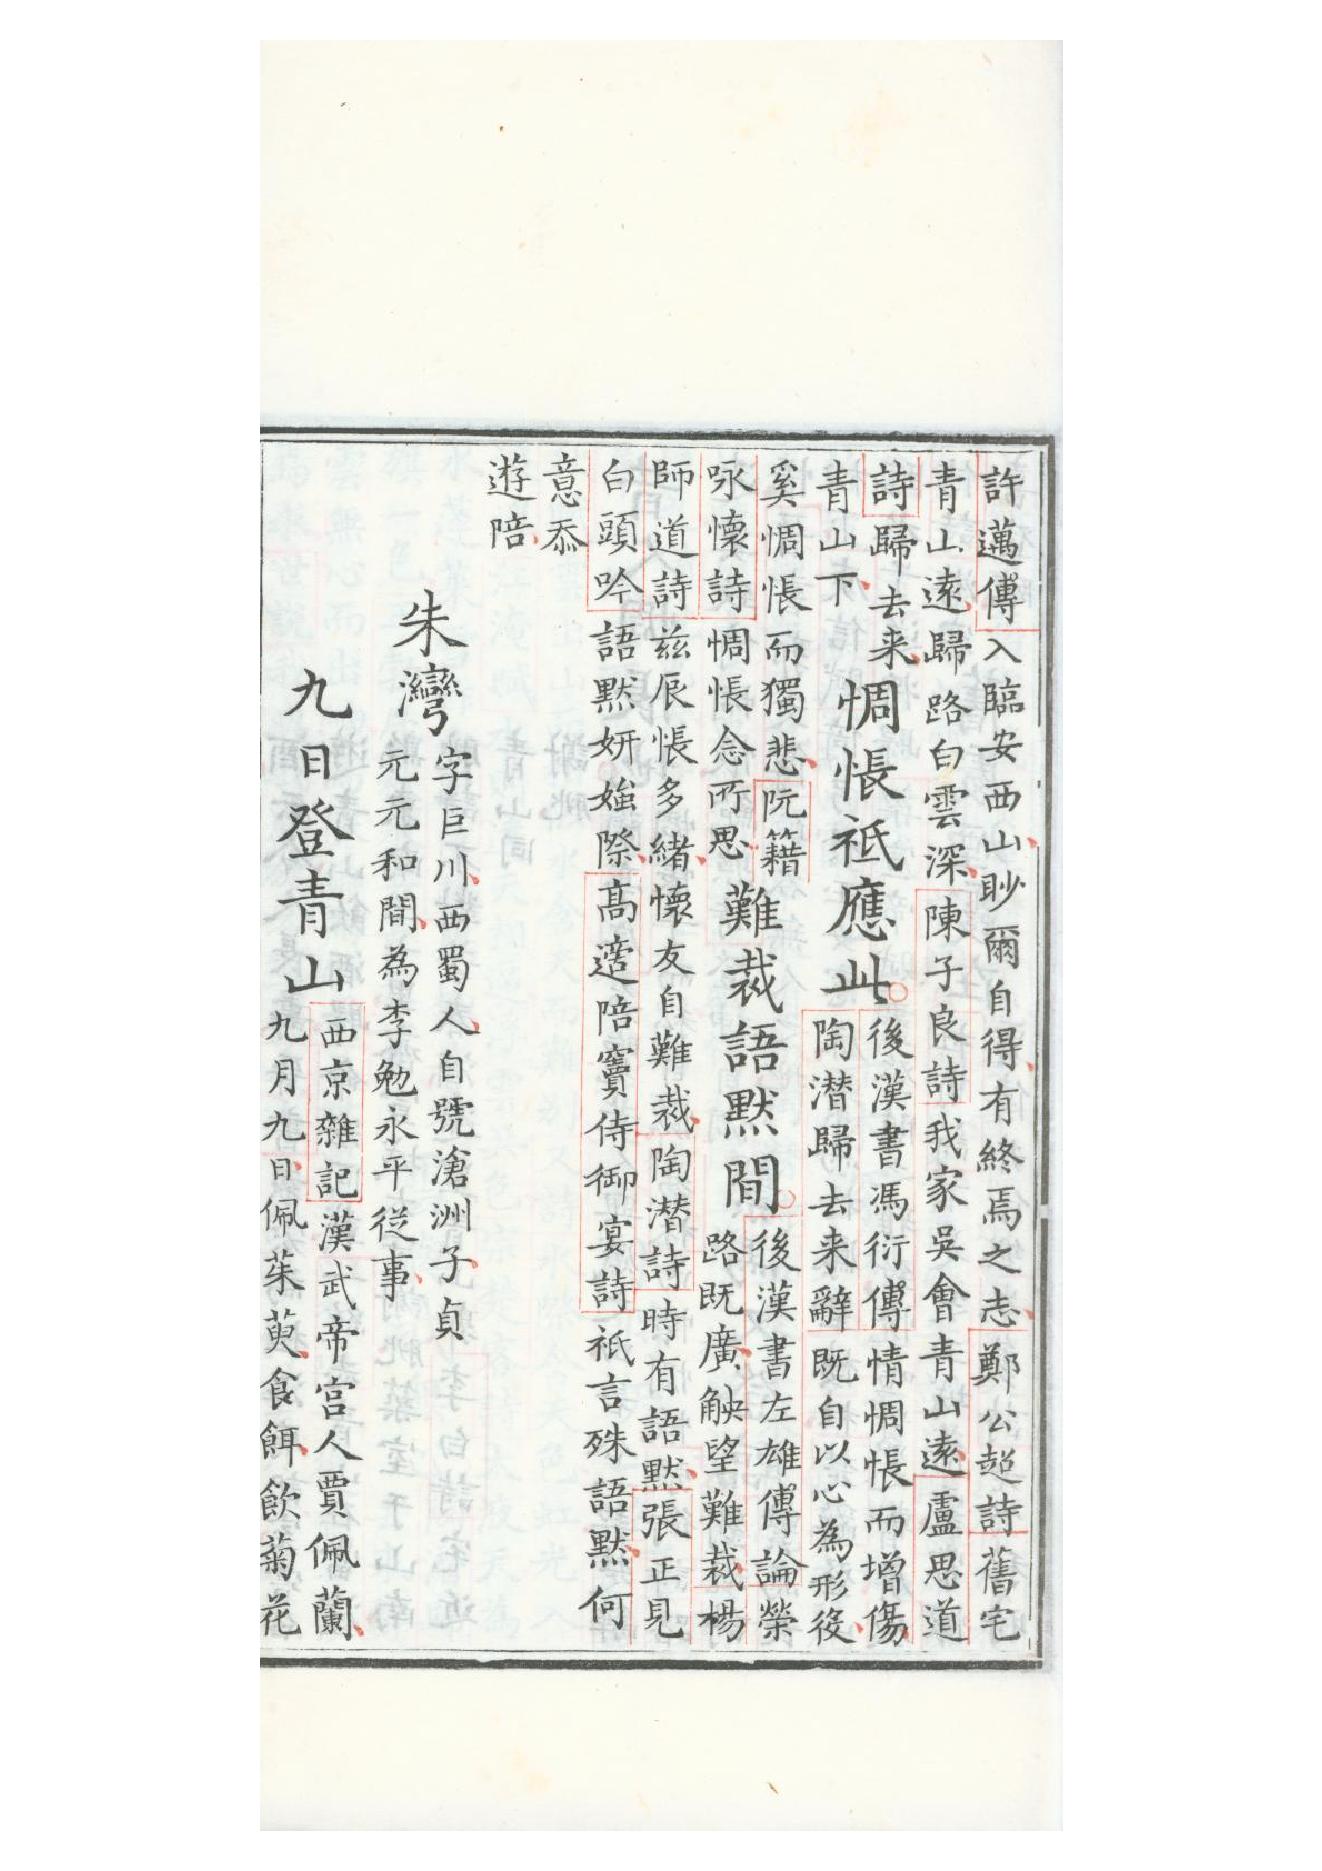 許邁傳入臨安西山眇爾自得有終焉之志鄭公超詩舊宅
青山遠歸路白雲深陳子良詩我家吳會青山遠盧思道
詩歸去来
青山下
惆悵祇應此
後漢書馮衍傳情惆悵而增傷
陶潜歸去来辭既自以心為形役
奚惆悵而獨悲阮籍
咏懷詩惆悵念所思
難裁語默間
後漢書左雄傳論榮
路既廣觖望難裁楊
師道詩茲辰悵多緒懷友自難裁陶潜詩時有語默張正見
白頭吟語默妍媸際高適陪竇侍御宴詩祇言殊語默何
意忝
遊陪
朱灣
字巨川西蜀人自號滄洲子貞
元元和間為李勉永平從事
九日登青山
西京雜記漢武帝宮人賈佩蘭
九月九日佩茱萸食餌飲菊花